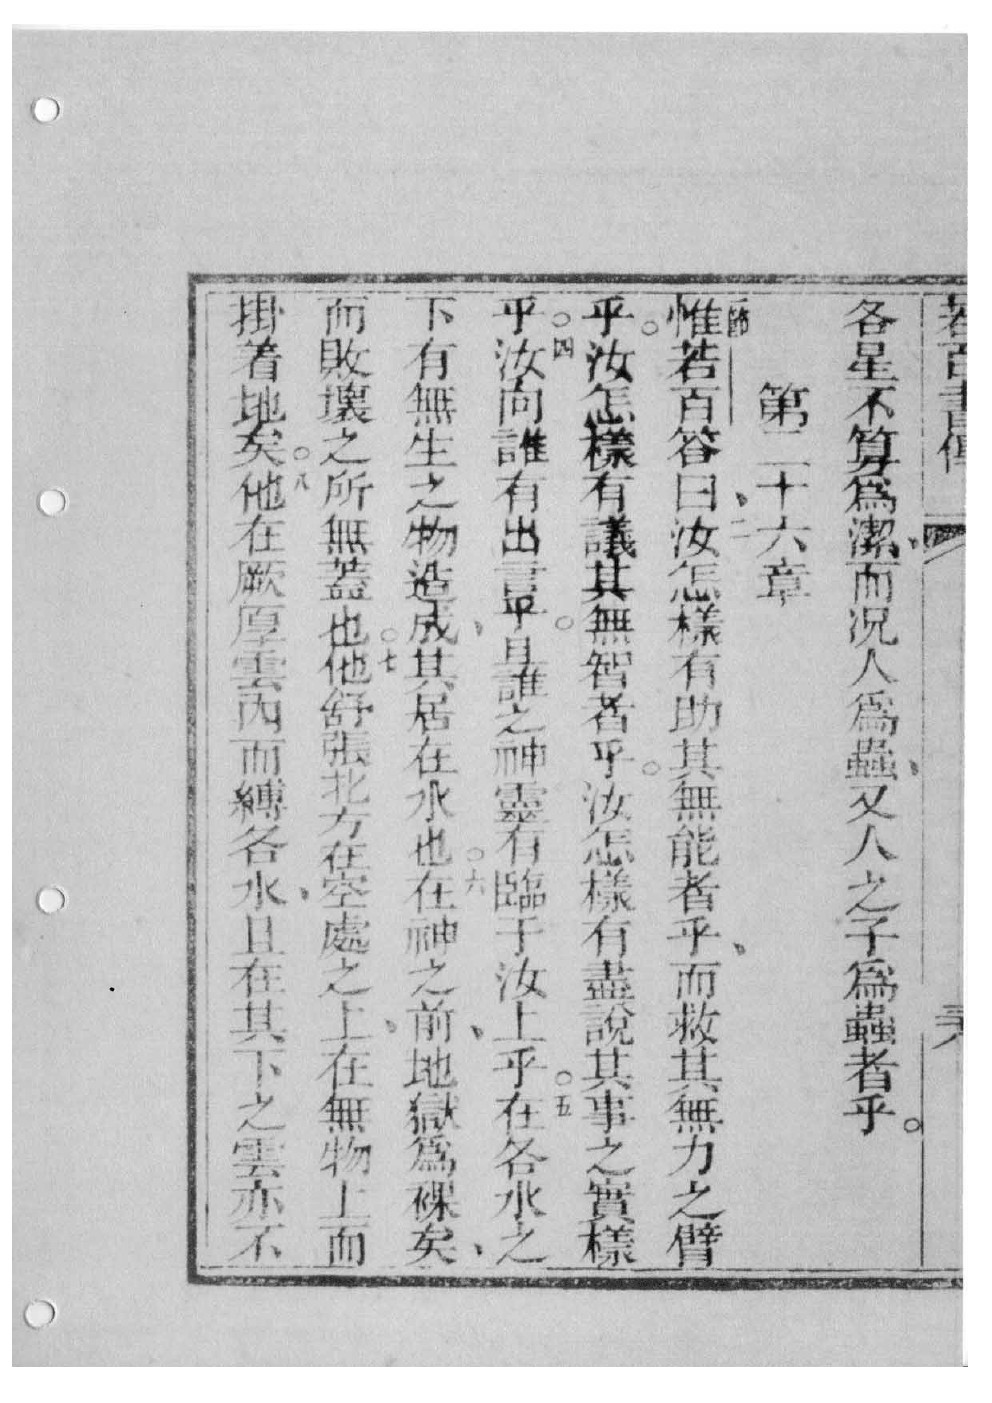 若百書傳
各星不算爲潔、而况人爲蟲、又人之子爲蟲者乎。
第二十六章
一節惟若百答曰、二汝怎樣有助其無能者乎、而救其無力之臂
乎。汝怎樣有議其無智者乎。汝怎樣有盡說其事之實樣
乎。四汝向誰有出言乎。且誰之神靈有臨于汝上乎。五在各水之
下有無生之物造成、其居在水也。六在神之前、地獄爲裸矣、
而敗壞之所無蓋也。七他舒張北方在空處之上、在無物上而
掛着地矣。八他在厥厚雲內而縛各水、且在其下之雲亦不